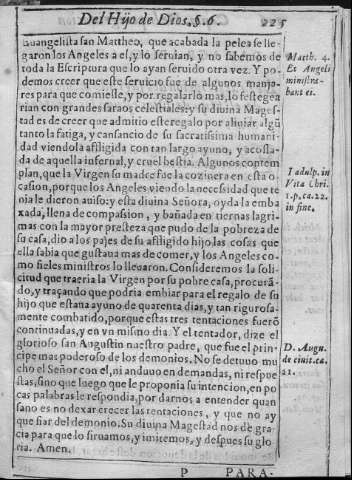 Del Hijo de Dios, §. 6. 225
Euangelista san Mattheo, que acabada la pelea se lle
garon los Angeles a el, y lo seruian, y no sabemos de
toda la Escriptura que lo ayan seruido otra vez. Y po
demos creer que este seruicio fue de algunos manja-
res para que comiesse, y por regalarlo mas, lo festegea
rian con grandes saraos celestiales: y su diuina Mages-
tad es de creer que admitio este regalo por aliuiar algũ
tanto la fatiga, y cansancio de su sacratissima humani-
dad viendola afligida con tan largo ayuno, y acossa-
da de aquella infernal, y cruel bestia. Algunos contem
plan, que la Virgen su madre fue la cozinera en esta o
casion, porque los Angeles viendo la necessidad que te
nia le dieron auiso: y esta diuina Señora, oyda la emba
xada, llena de compassion, y bañada en tiernas lagri
mas con la mayor presteza que pudo de la pobreza de
su casa, dio a los pajes de su afligido hijo, las cosas que
ella sabia que gustaua mas de comer, y los Angeles co-
mo fieles ministros lo lleuaron. Consideremos la soli-
citud que traeria la Virgen por su pobre casa, procurã-
do, y traçando que podria embiar para el regalo de su
hijo que estaua ayuno de quarenta dias, y tan rigurosa-
mente combatido, porque estas tres tentaciones fuerõ
continuadas, y en vn mismo dia. Y el tentador, dize el
glorioso san Augustin nuestro padre, que fue el prin-
cipe mas poderoso de los demonios. No se detuuo mu
cho el Señor con el, ni anduuo en demandas, ni respue
stas, sino que luego que le proponia su intencion, en po
cas palabras le respondia, por darnos a entender quan
sano es no dexar crecer las tentaciones, y que no ay
que fiar del demonio. Su diuina Magestad nos dè gra-
cia para que lo siruamos, y imitemos, y despues su glo
ria. Amen.
P PARA-
Matth. 4.
Et Angeli
ministra-
bant ei.
Ladulp. in
Vita Chri.
1. p. ca. 22.
in fine.
D. Augu.
de ciuit. ca.
21.